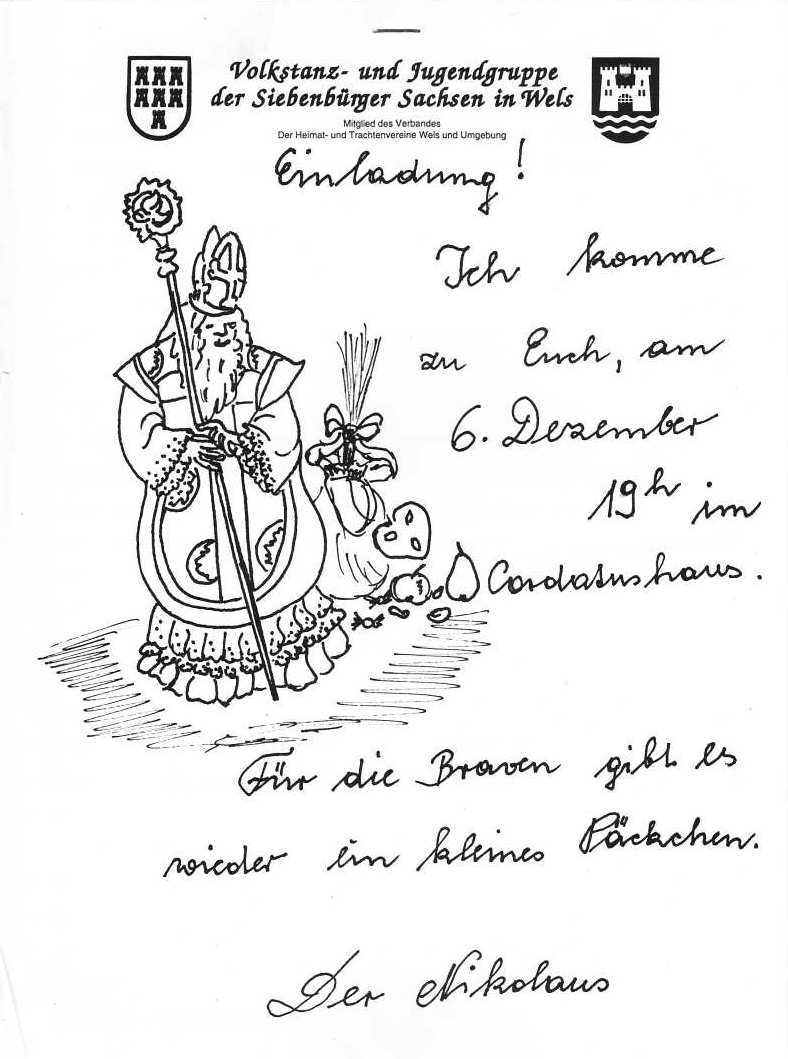 Volkstanz- und Jugendgruppe
der Siebenbürger Sachsen in Wels
Mitglied des Verbandes
Der Heimat- und Trachtenvereine Wels und Umgebung
Einladung!
Ich komme
zu Euch, am
6. Dezember
19h im
Cordatushaus.
Für die Braven gibt es
wieder ein kleines Päckchen.
Der Nikolaus